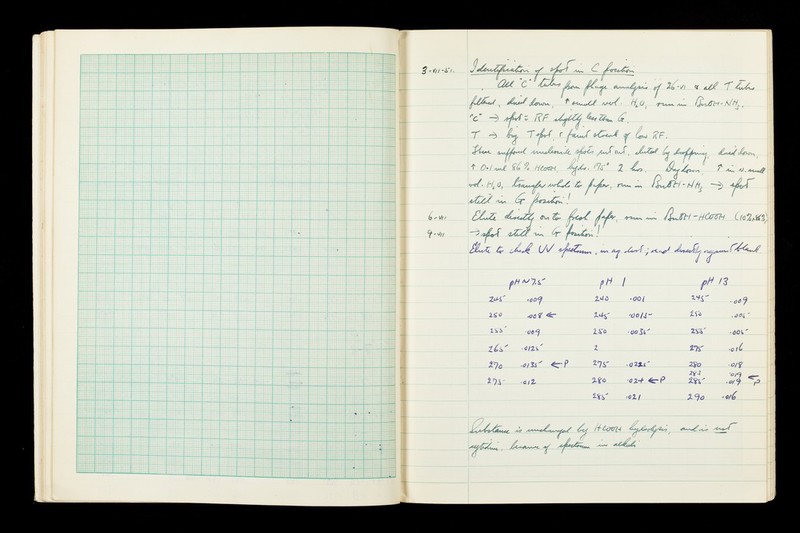 3-VII-51. Identification of spot in C position
All "C" tubes from phage analysis of 26-VI & all T tubes
filtered, dried down, ↑ small vol. H₂O, run in BuOH-NH₃.
"C" → spot = RF slightly less than G.
T → big T spot, & faint streak of low RF.
dried down,
↑ 0.1 ml 86% HCOOH, hydr. 175° 2 hrs. Dry down, ↑ in v. small
vol. H₂O, transfer whole to paper, run in BuOH-NH₃ → spot
still in G position!
6-VII Elute directly on to fresh paper, run in BuOH-HCOOH
9-VII → spot still in G position!
Elute to check UV spectrum, ; read directly against blank
pH ~ 7.5 pH 1 pH 13
245 .009 240 .001 245 .009
250 .008 ← 245 .0015 250 .005
255 .009 250 .0035 255 .005
265 .0125 2 275 .016
270 .0135 ← P 275 .0225 280 .018
283 .019 ← P
275 .012 280 .024 ← P 285 .019
285 .021 290 .016
Substance is unchanged by HCOOH hydrolysis, and is not
cytosine, because of spectrum in alkali